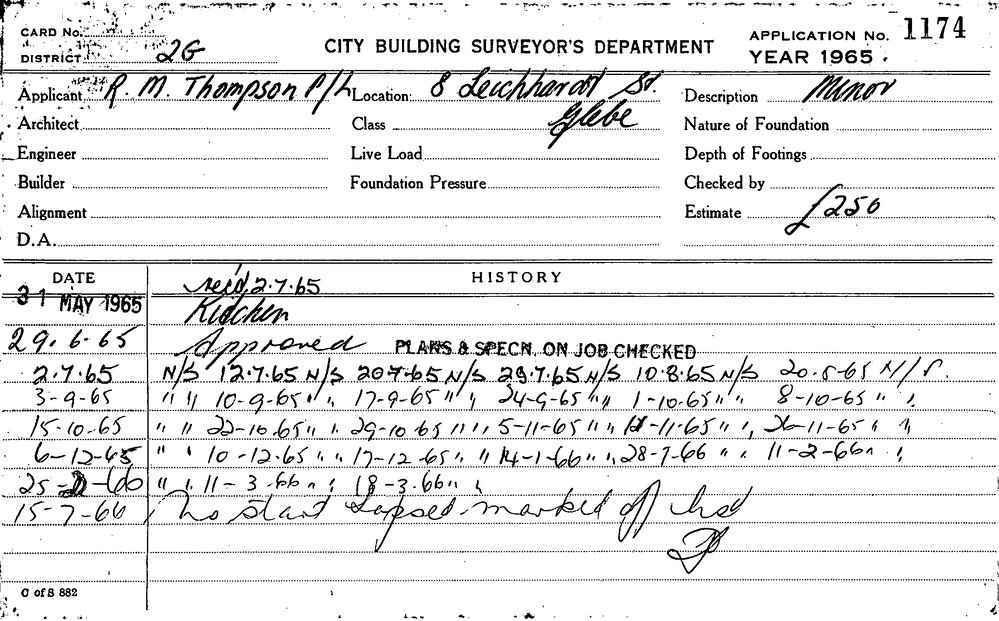 CARD No.
DISTRICT 2G
CITY BUILDING SURVEYOR'S DEPARTMENT
APPLICATION No. 1174
YEAR 1965.
Applicant R. M. Thompson P/L Location: 8 Leichhardt St. Description Minor
Architect Class Glebe Nature of Foundation
Engineer Live Load Depth of Footings
Builder Foundation Pressure Checked by
Alignment Estimate £250
D.A.
DATE HISTORY
rec'd 2.7.65
31 MAY 1965 Kitchen
29.6.65 Approved PLANS & SPECN. ON JOB CHECKED
2.7.65 N/S 12.7.65 N/S 20.7.65 N/S 29.7.65 N/S 10.8.65 N/S 20.8.65 N/S.
3-9-65 " " 10-9-65 " " 17-9-65 " " 24-9-65 " " 1-10-65 " " 8-10-65 " "
15-10-65 " " 22-10.65 " " 29-10 65 " " 5-11-65 " " 11-65 " " 26-11-65 " "
6-12-65 " " 10-12.65 " " 17-12 65 " " 14-1-66 " " 28-1-66 " " 11-2-66 " "
25-2-66 " " 11-3.66 " " 18-3.66 " "
15-7-66 No start Lapsed marked off
C of S 882